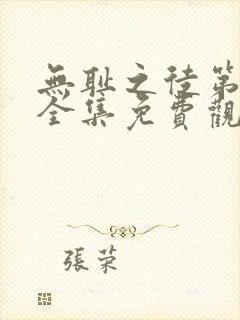 無耻之徒第
全集免費觀
張荣